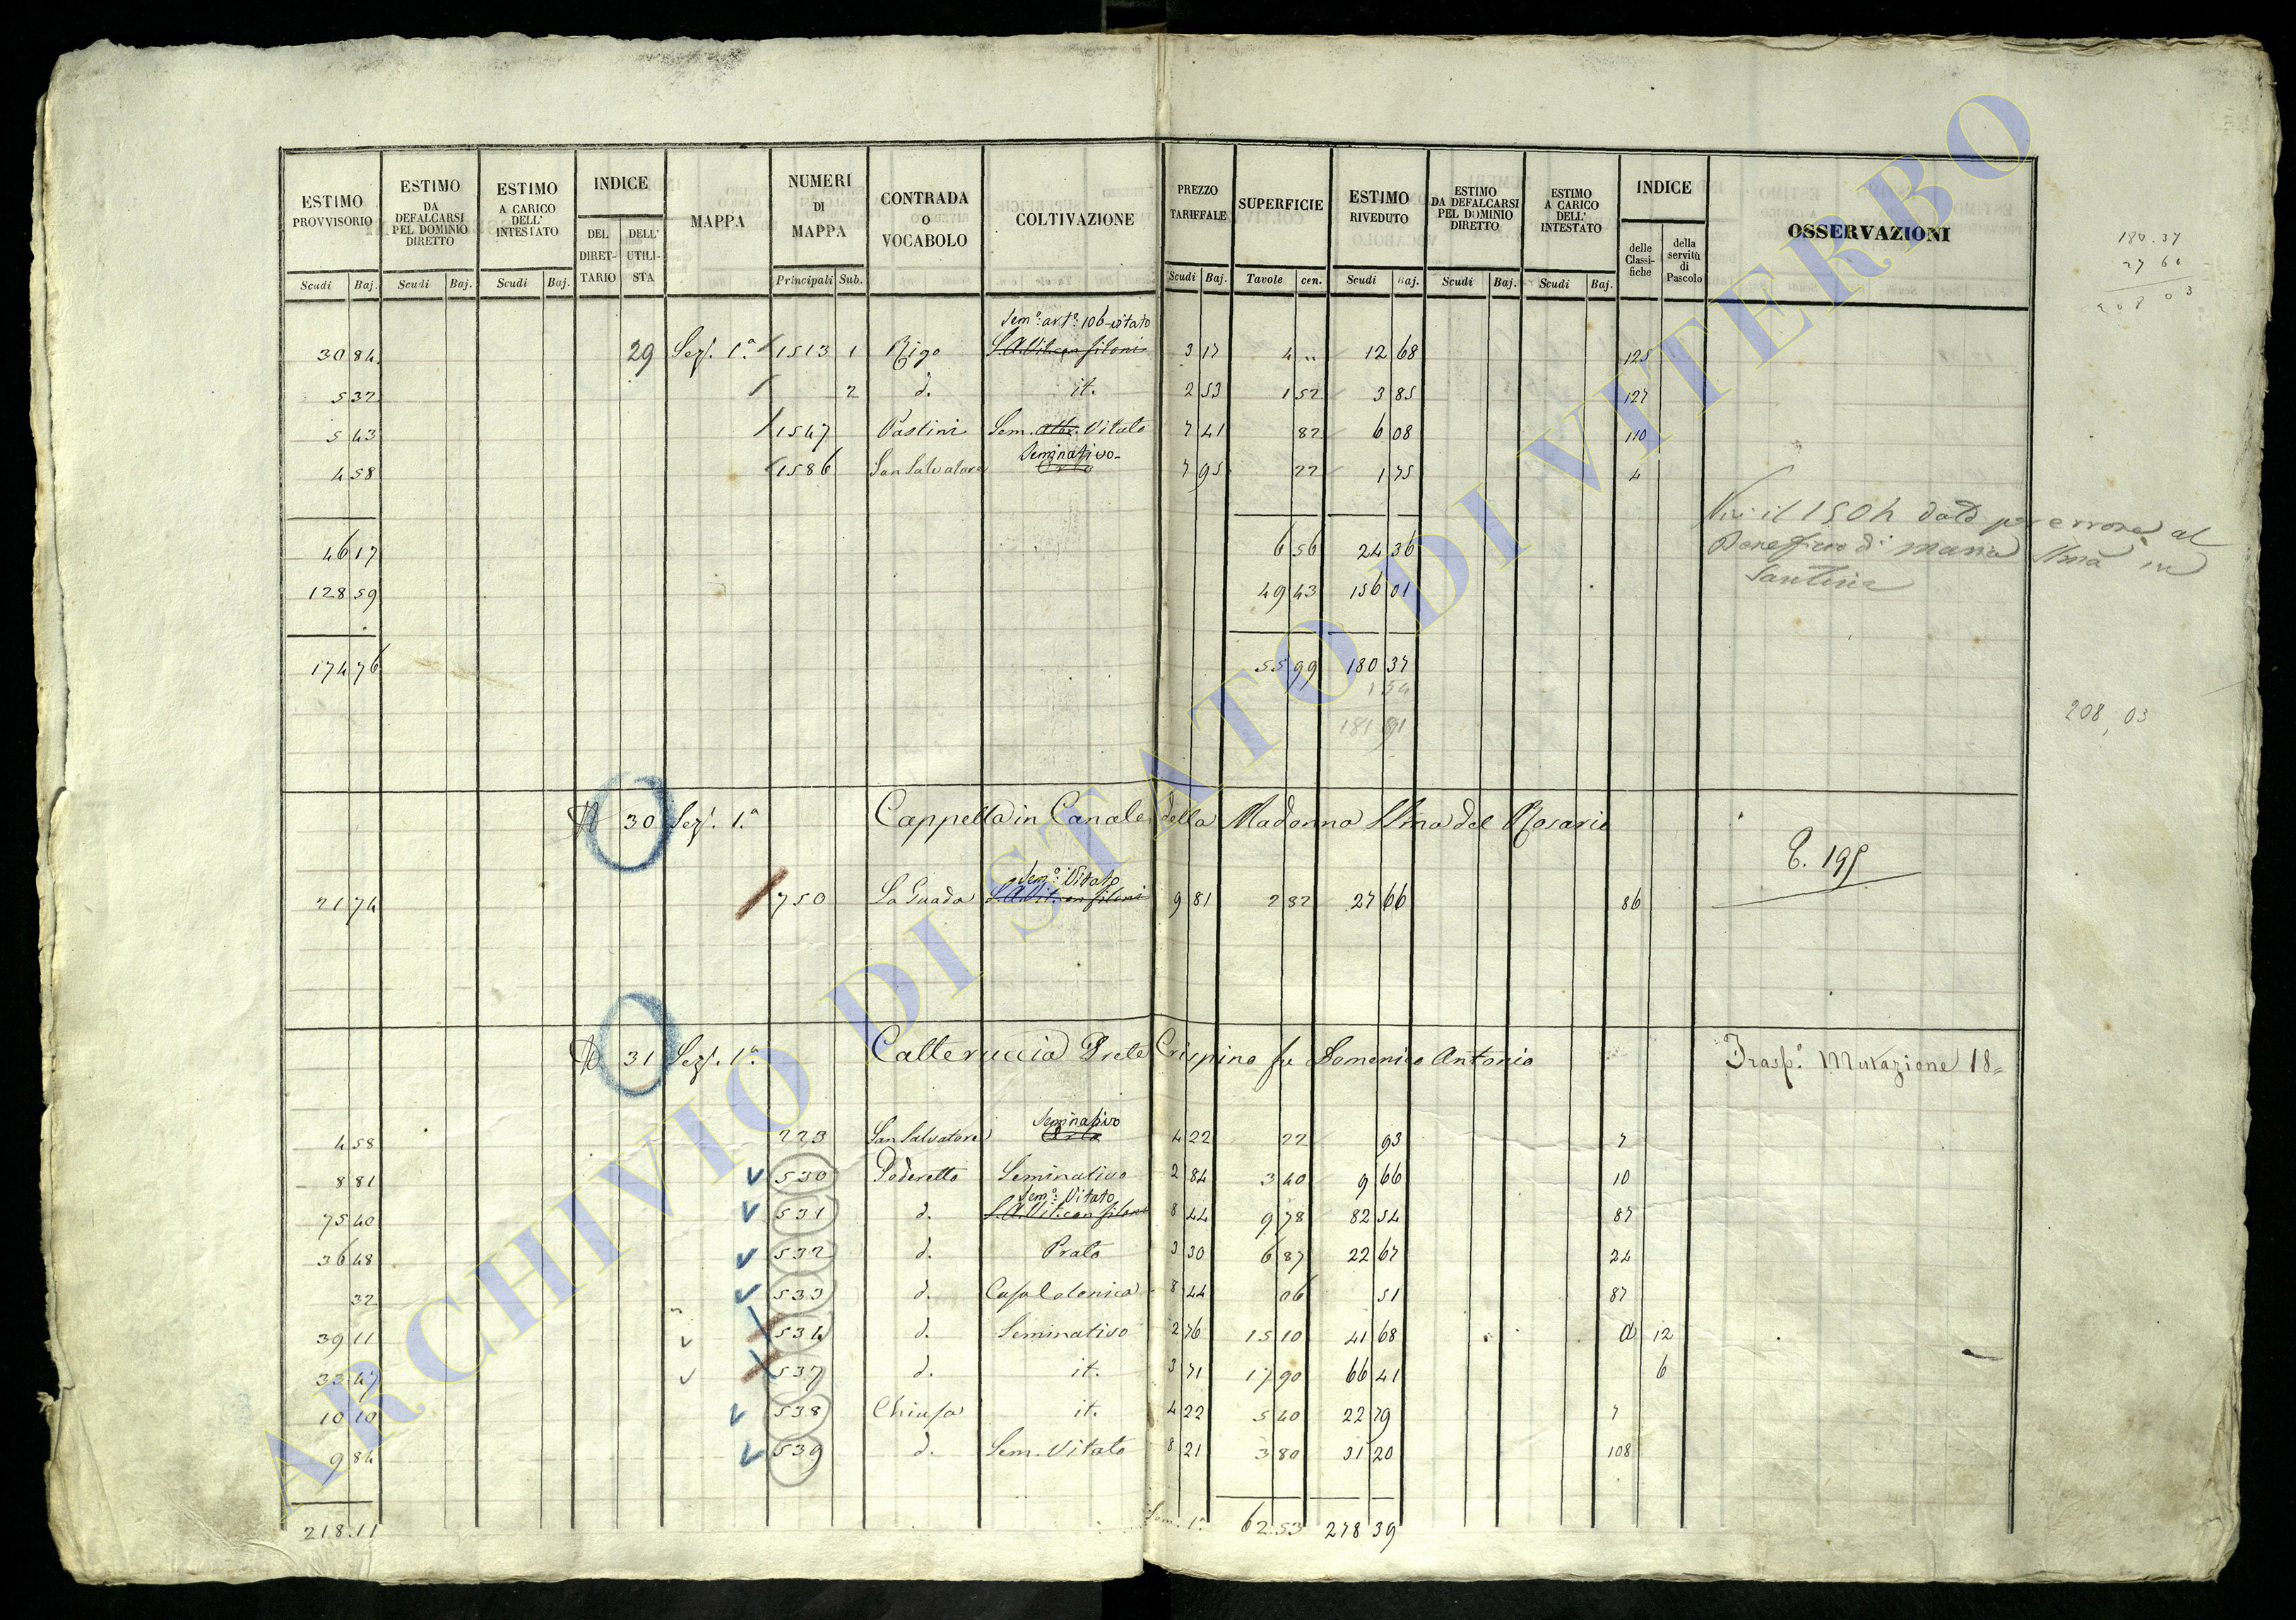 ESTIMO PROVVISORIO Scudi Baj. ESTIMO DA DEFALCARSI PEL DOMINIO DIRETTO Scudi Baj. ESTIMO A CARICO DELL' INTESTATO Scudi Baj. INDICE DEL DIRET-TARIO DELL' UTILI-STA MAPPA NUMERI DI MAPPA Principali Sub. CONTRADA O VOCABOLO COLTIVAZIONE PREZZO TARIFFALE Scudi Baj. SUPERFICIE Tavole cen. ESTIMO RIVEDUTO Scudi Baj. ESTIMO DA DEFALCARSI PEL DOMINIO DIRETTO Scudi Baj. ESTIMO A CARICO DELL' INTESTATO Scudi Baj. INDICE delle Classi-fiche della servitù di Pascolo OSSERVAZIONI
180.37
27 66
208 03
Sem.º art.º 106 vitato
30 84 29 Sez. 1.ª 1513 1 Rigo S.A.Vit. con filoni 3 17 4 „ 12 68 125
5 32 2 d. it. 2 53 1 52 3 85 127
5 43 1547 Pastini Sem. Vitato 7 41 82 6 08 110
Seminativo
4 58 1586 San Salvatore Orto 7 95 22 1 75 4
46 17 6 56 24 36
128 59 49 43 156 01
174 76 55 99 180 37
1 54
181 91
208,03
Vi è il 1504 dato per errore al
Beneficio di Maria SSma in
30 Sez. 1.ª Cappella in Canale della Madonna SSma del Rosario
Sem.º Vitato
21 74 750 La Guada S.A.Vit. con filoni 9 81 2 82 27 66 86
31 Sez. 1.ª Calteruccia Prete Crispino fu Domenico Antonio Trasp.º Mutazione 18
Seminativo
4 58 223 San Salvatore Orto 4 22 22 93 7
8 81 530 Poderetto Seminativo 2 84 3 40 9 66 10
Sem.º Vitato
75 40 531 d. S.A.Vit. con filoni 8 44 9 78 82 54 87
36 48 532 d. Prato 3 30 6 87 22 67 24
32 533 d. Casa Colonica 8 44 06 51 87
39 11 534 d. Seminativo 2 76 15 10 41 68 12
33 47 537 d. it. 3 71 17 90 66 41 6
10 10 538 Chiusa it. 4 22 5 40 22 79 7
9 84 539 d. Sem. Vitato 8 21 3 80 31 20 108
218.11 62 53 278 39
ARCHIVIO DI STATO DI VITERBO